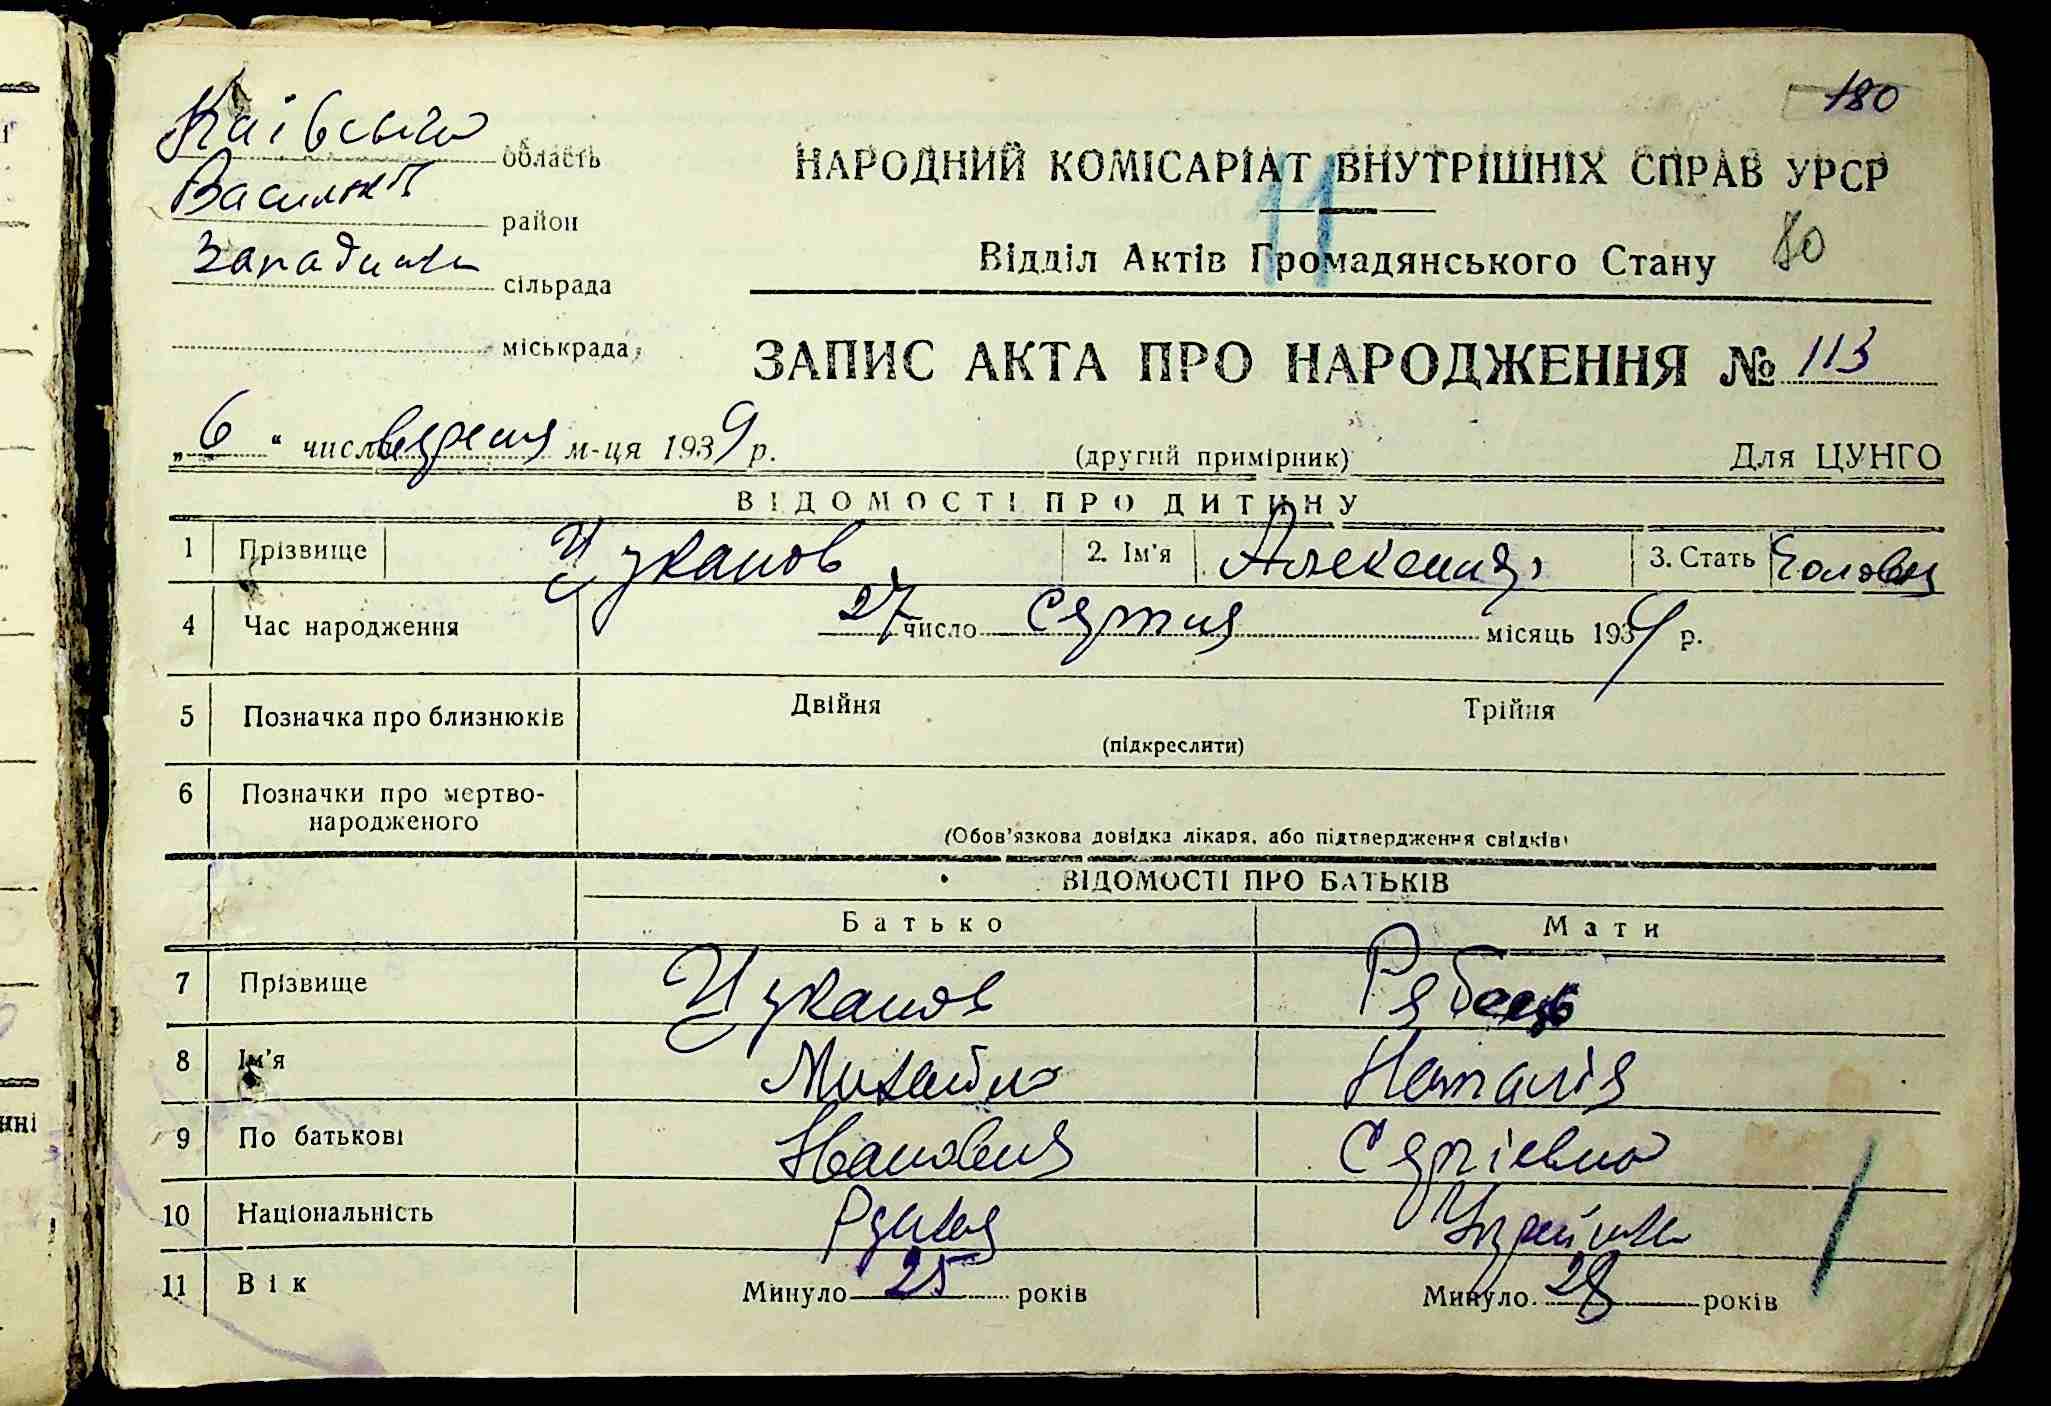 180
Київсько область
НАРОДНИЙ КОМІСАРІАТ ВНУТРІШНІХ СПРАВ УРСР
11
Васильків район
Відділ Актів Громадянського Стану 80
Западинка сільрада
міськрада
ЗАПИС АКТА ПРО НАРОДЖЕННЯ № 113
„6“ числа вересня м-ця 1939 р. (другий примірник) Для ЦУНГО
ВІДОМОСТІ ПРО ДИТИНУ
1 Прізвище Цуканов 2. Ім'я 3. Стать Чоловіч
4 Час народження 27 число Серпня місяць 1939 р.
5 Позначка про близнюків Двійня Трійня
(підкреслити)
6 Позначки про мертво-
народженого
(Обов'язкова довідка лікаря, або підтвердження свідків)
ВІДОМОСТІ ПРО БАТЬКІВ
Батько Мати
7 Прізвище Цуканов
8 Ім'я Михайло Наталія
9 По батькові Іванович Сергіевна
10 Національність Українка
11 Вік Минуло 25 років Минуло 28 років
нні